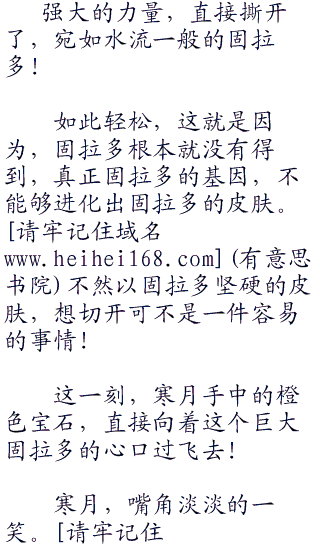 强大的力量，直接撕开
了，宛如水流一般的固拉
多！
如此轻松，这就是因
为，固拉多根本就没有得
到，真正固拉多的基因，不
能够进化出固拉多的皮肤。
[请牢记住域名
www.heihei168.com](有意思
书院)不然以固拉多坚硬的皮
肤，想切开可不是一件容易
的事情！
这一刻，寒月手中的橙
色宝石，直接向着这个巨大
固拉多的心口过飞去！
寒月，嘴角淡淡的一
笑。[请牢记住